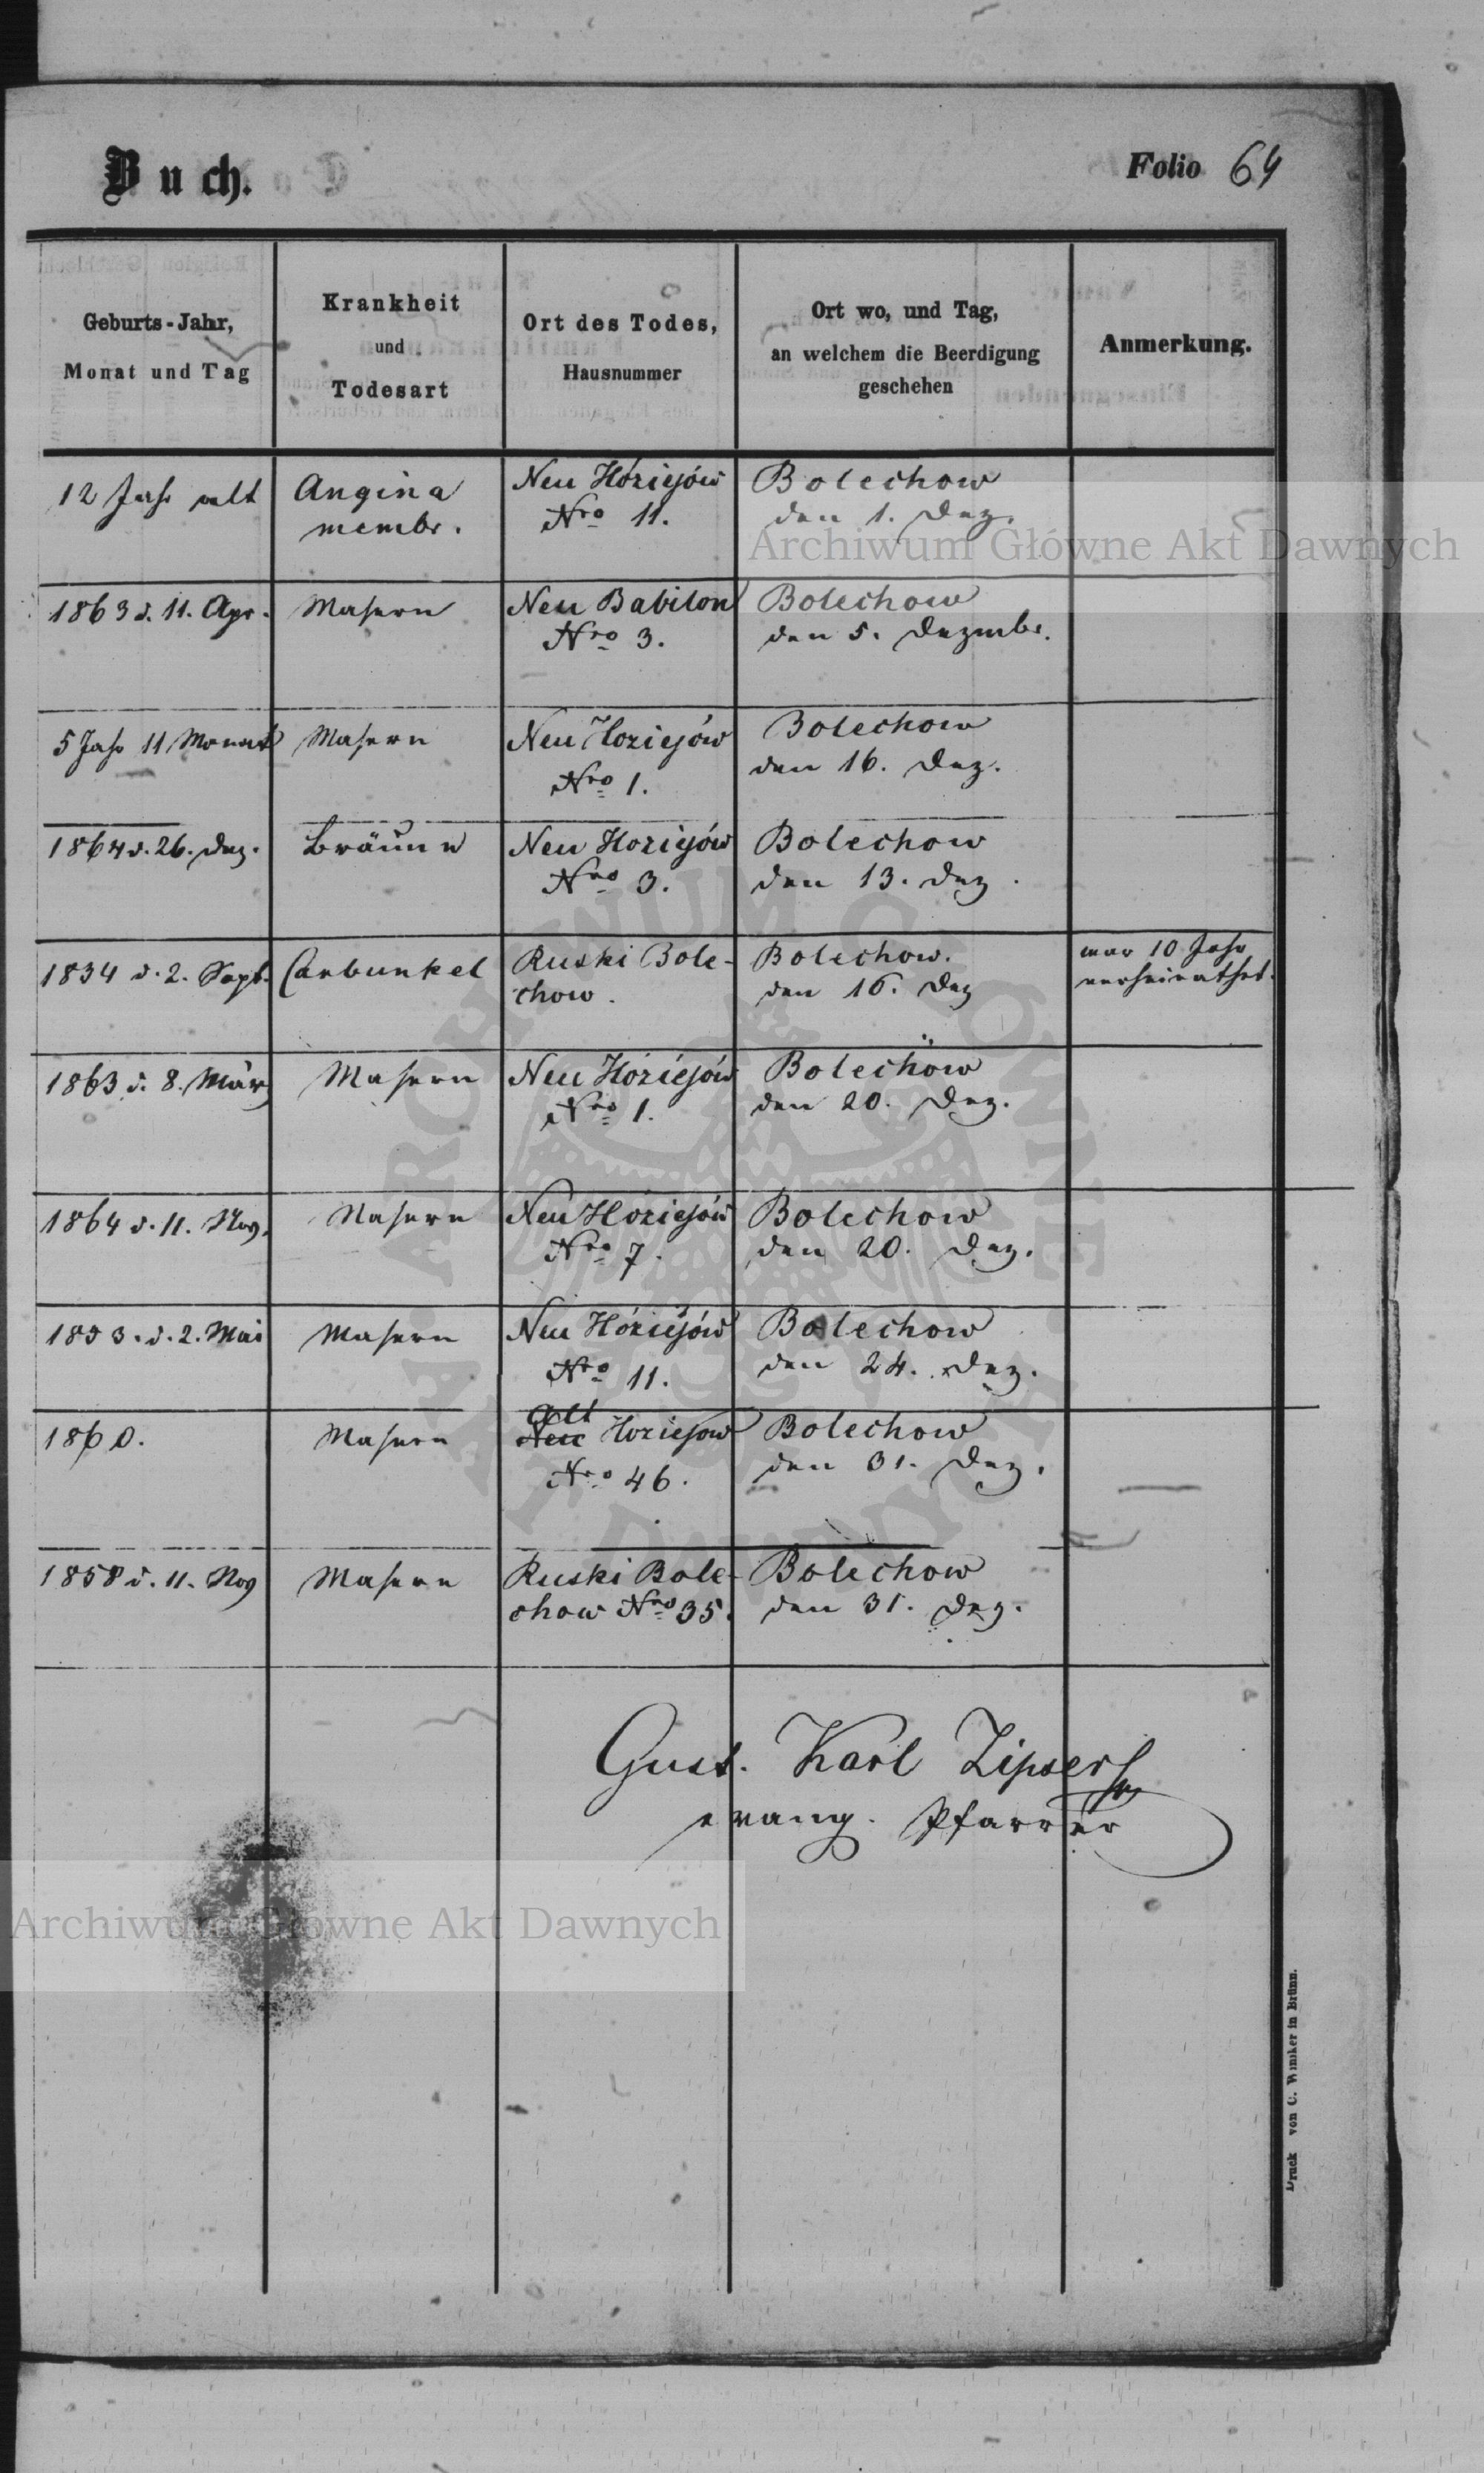 Buch.
Folio 64
Geburts-Jahr,
Monat und Tag
Krankheit
und
Todesart
Ort des Todes,
Hausnummer
Ort wo, und Tag,
an welchem die Beerdigung
geschehen
Anmerkung.
12 Jahr alt
Angina
membr.
Neu Hoziejów
Nro 11.
Bolechow
den 1. Dez.
1863 d. 11. Apr.
Masern
Neu Babilon
Nro 3.
Bolechow
den 5. Dezembr.
5 Jahr 11 Monat
Masern
Neu Hoziejów
Nro 1.
Bolechow
den 16. Dez.
1864 d. 26. Dez.
Bräune
Neu Hoziejów
Nro 3.
Bolechow
den 13. Dez.
1834 d. 2. Sept.
Carbunkel
Ruski Bole-
chow.
Bolechow.
den 16. Dez
war 10 Jahr
verheirathet.
1863 d. 8. März
Masern
Neu Hoziejów
Nro 1.
Bolechow
den 20. Dez.
1864 d. 11. Nov.
Masern
Neu Hoziejów
Nro 7.
Bolechow
den 20. Dez.
1853. d. 2. Mai
Masern
Neu Hoziejów
Nro 11.
Bolechow
den 24. Dez.
1860.
Masern
alt
Neu Hoziejow
Nro 46.
Bolechow
den 31. Dez.
1858 d. 11. Nov
Masern
Ruski Bole-
chow Nro 35.
Bolechow
den 31. Dez.
Gust. Karl Zipser
evang. Pfarrer
Druck von C. Winiker in Brünn.
Archiwum Główne Akt Dawnych
Archiwum Główne Akt Dawnych
ARCHIWUM GŁÓWNE AKT DAWNYCH